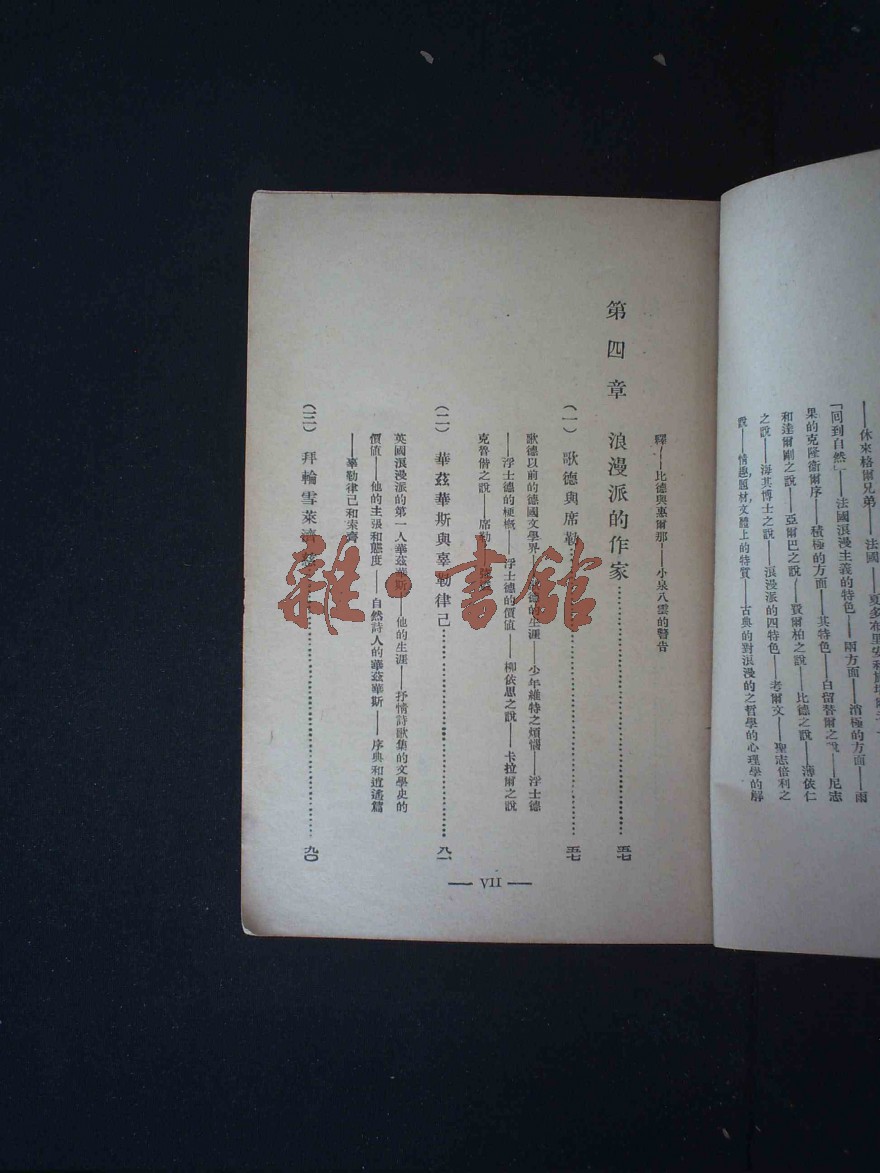 ——休來格爾兄弟——法國——夏多布里安
「回到自然」——法國浪漫主義的特色——兩方面——消極的方面——雨
果的克隆衞爾序——積極的方面——其特色——白留替爾之說——尼志
和達爾剛之說——亞爾巴之說——費爾柏之說——比德之說——薄依仁
之說——海其博士之說——浪漫派的四特色——考爾文——聖志倍利之
說——情趣,題材,文體上的特質——古典的對浪漫的之哲學的心理學的解
釋——比德與惠爾那——小泉八雲的警告
第四章 浪漫派的作家 五七
(一) 歌德與席勒 五七
歌德以前的德國文學界——歌德的生涯——少年維特之煩惱——浮士德
——浮士德的梗概——浮士德的價値——柳依思之說——卡拉爾之說
克魯偕之說——席勒
(二) 華茲華斯與辜勒律己 八一
英國浪漫派的第一人華茲華斯——他的生涯——抒情詩歌集的文學史的
價値——他的主張和態度——自然詩人的華茲華斯——序典和逍遙篇
——辜勒律己和索齊
(三) 拜輪雪萊濟慈 九〇
— VII —
雜·書館